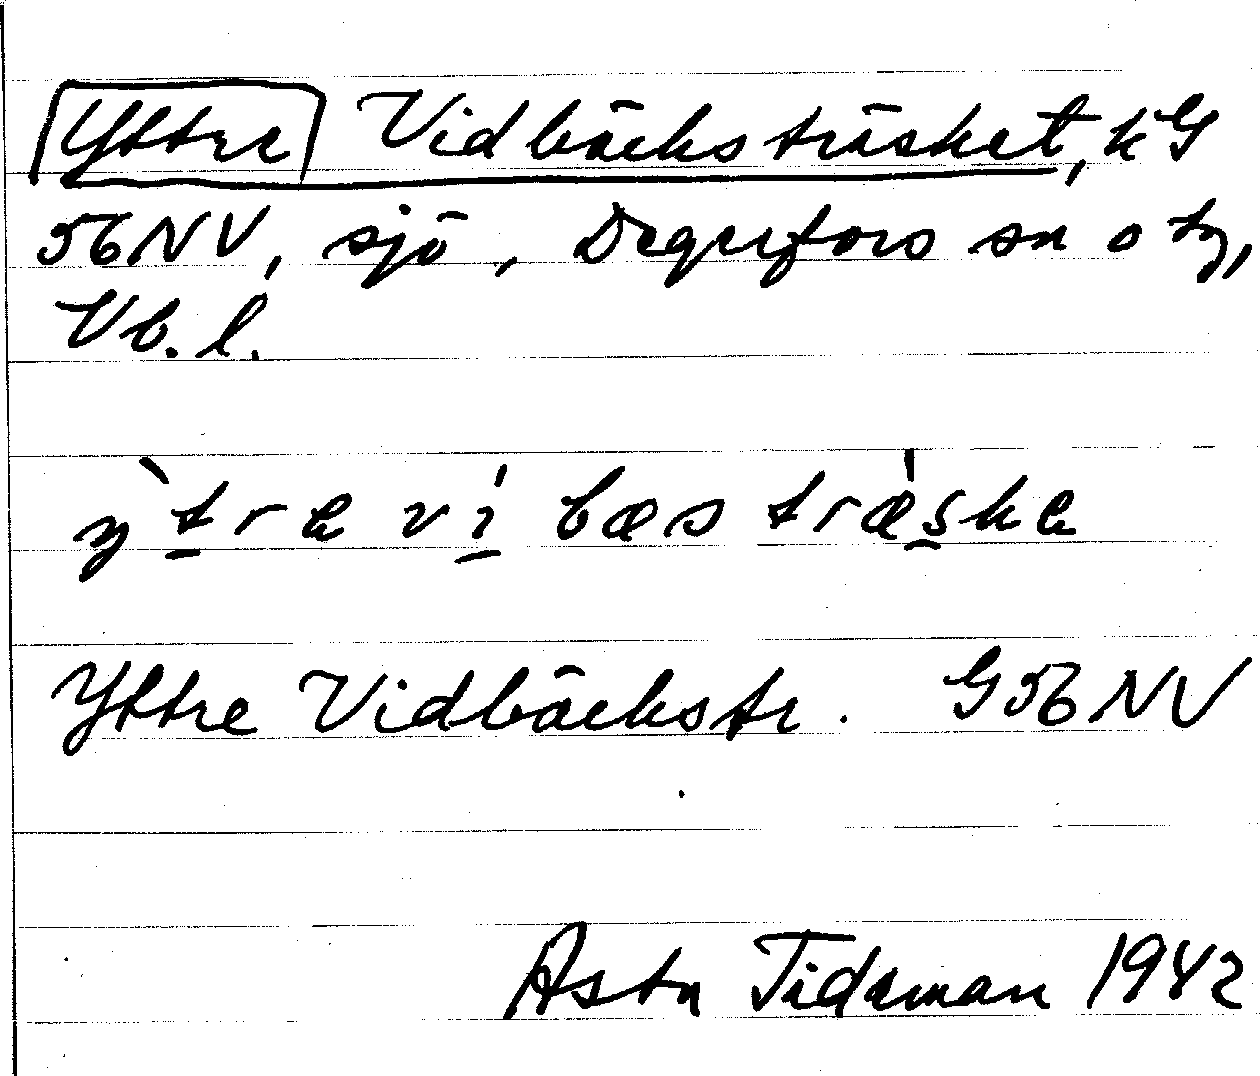 Yttre Vidbäcksträsket, kG
56NV, sjö, Degerfors sn o tg,
Vb. l.
y̍tre vi̍bæs træ̍ske
Yttre Vidbäckstr. G56NV
Asta Tideman 1942